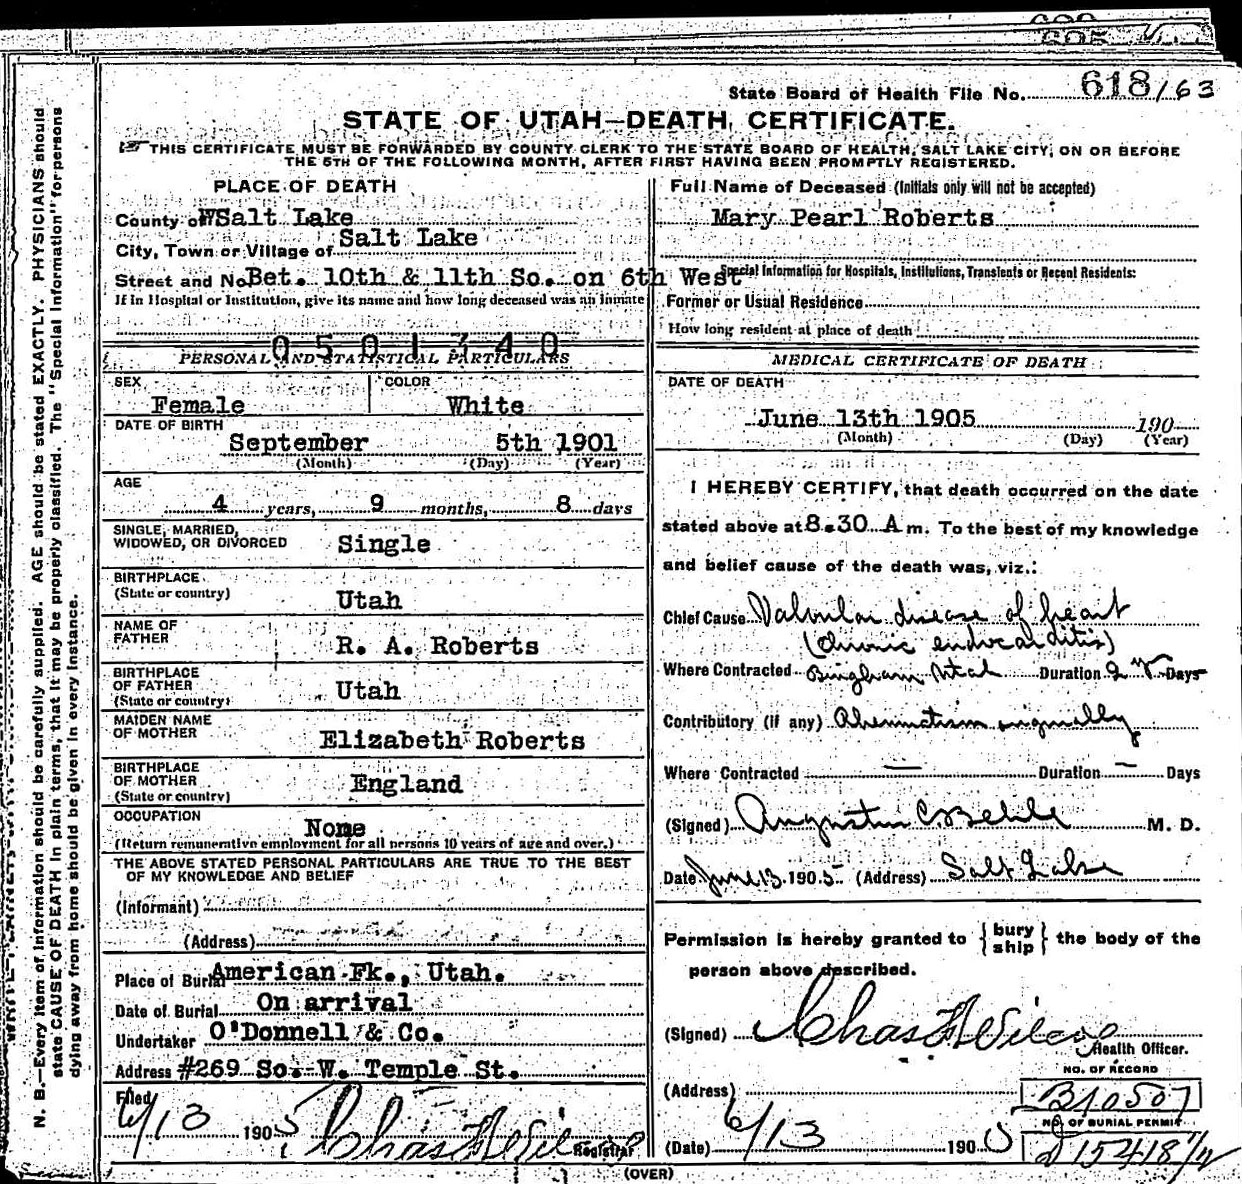 State Board of Health File No. 618/63
STATE OF UTAH—DEATH CERTIFICATE.
THIS CERTIFICATE MUST BE FORWARDED BY COUNTY CLERK TO THE STATE BOARD OF HEALTH, SALT LAKE CITY, ON OR BEFORE
THE 5TH OF THE FOLLOWING MONTH, AFTER FIRST HAVING BEEN PROMPTLY REGISTERED.
PLACE OF DEATH
County of Salt Lake
City, Town or Village of Salt Lake
Street and No. Bet. 10th & 11th So. on 6th West
If in Hospital or Institution, give its name and how long deceased was an inmate
0501340
PERSONAL AND STATISTICAL PARTICULARS
SEX COLOR
Female White
DATE OF BIRTH
September 5th 1901
(Month) (Day) (Year)
AGE
4 years, 9 months, 8 days
SINGLE, MARRIED,
WIDOWED, OR DIVORCED Single
BIRTHPLACE
(State or country) Utah
NAME OF
FATHER R. A. Roberts
BIRTHPLACE
OF FATHER Utah
(State or country)
MAIDEN NAME
OF MOTHER Elizabeth Roberts
BIRTHPLACE
OF MOTHER England
(State or country)
OCCUPATION
None
(Return remunerative employment for all persons 10 years of age and over.)
THE ABOVE STATED PERSONAL PARTICULARS ARE TRUE TO THE BEST
OF MY KNOWLEDGE AND BELIEF
(Informant)
(Address)
Place of Burial American Fk., Utah.
Date of Burial On arrival
Undertaker O'Donnell & Co.
Address #269 So. W. Temple St.
Filed
6/13 1905 Chas Registrar
Full Name of Deceased (Initials only will not be accepted)
Mary Pearl Roberts
Special Information for Hospitals, Institutions, Transients or Recent Residents:
Former or Usual Residence
How long resident at place of death
MEDICAL CERTIFICATE OF DEATH
DATE OF DEATH
June 13th 1905 190
(Month) (Day) (Year)
I HEREBY CERTIFY, that death occurred on the date
stated above at 8.30 A m. To the best of my knowledge
and belief cause of the death was, viz.:
Chief Cause Valvular disease of heart
(Chronic endocarditis)
Where Contracted Bingham Utah Duration 2 yr Days
Contributory (if any) Rheumatism originally
Where Contracted — Duration — Days
(Signed) Augustus C. Behle M. D.
Date June 13 1905 (Address) Salt Lake
Permission is hereby granted to { bury ship } the body of the
person above described.
(Signed) Chas
Health Officer.
NO. OF RECORD
(Address) B10507
NO. OF BURIAL PERMIT
(Date) 6/13 1905 D 15418
(OVER)
N. B.—Every item of information should be carefully supplied. AGE should be stated EXACTLY. PHYSICIANS should
state CAUSE OF DEATH in plain terms, that it may be properly classified. The "Special Information" for persons
dying away from home should be given in every instance.